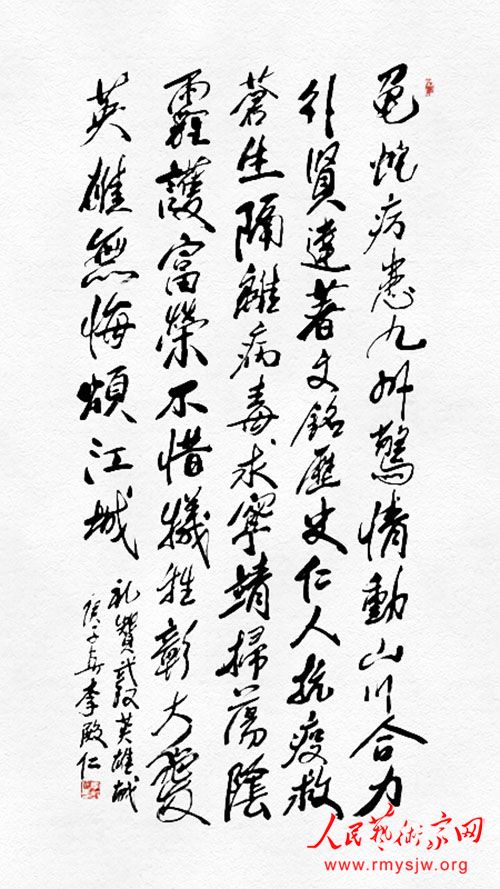 龟蛇病患九州驚情動山川合力
行賢達著文銘歷史仁人抗疫救
蒼生隔離病毒求寧靖掃蕩陰
霾護富榮不惜犧牲彰大愛
英雄無悔頌江城
礼贊武汉英雄城
庚子年李殿仁
人民藝術家网
www.rmysjw.org